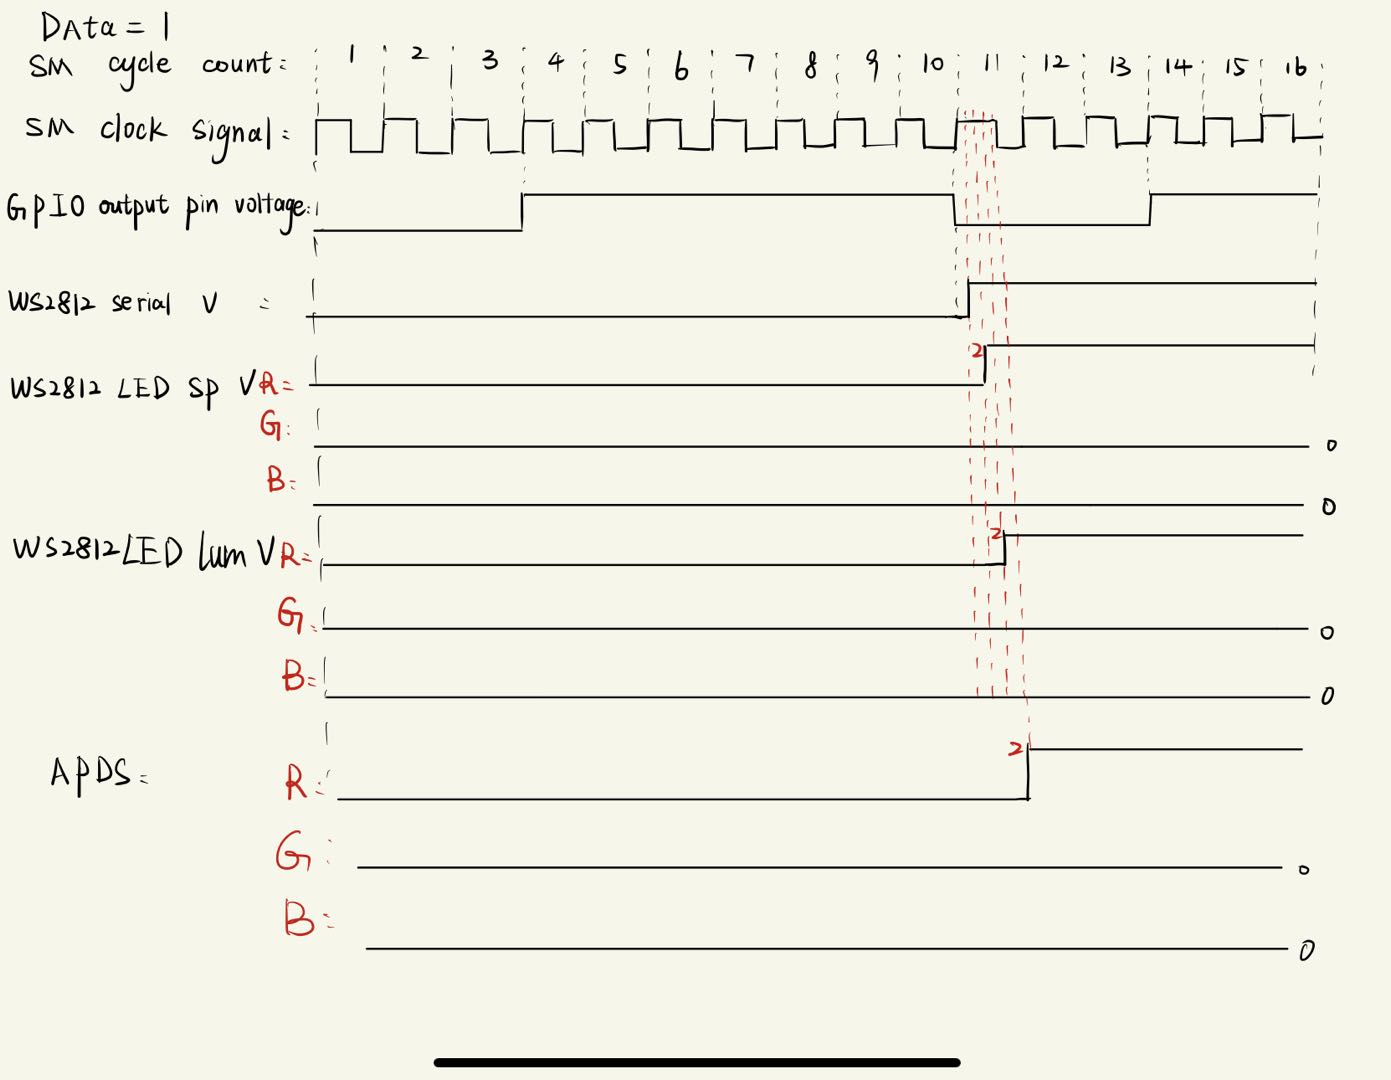 DAta = 1
SM cycle count: 1 2 3 4 5 6 7 8 9 10 11 12 13 14 15 16
SM clock signal:
GPIO output pin voltage:
WS2812 serial V =
2
WS2812 LED SP V R=
G: 0
B= 0
2
WS2812 LED Lum V R=
G= 0
B= 0
2
APDS= R:
G: 0
B= 0